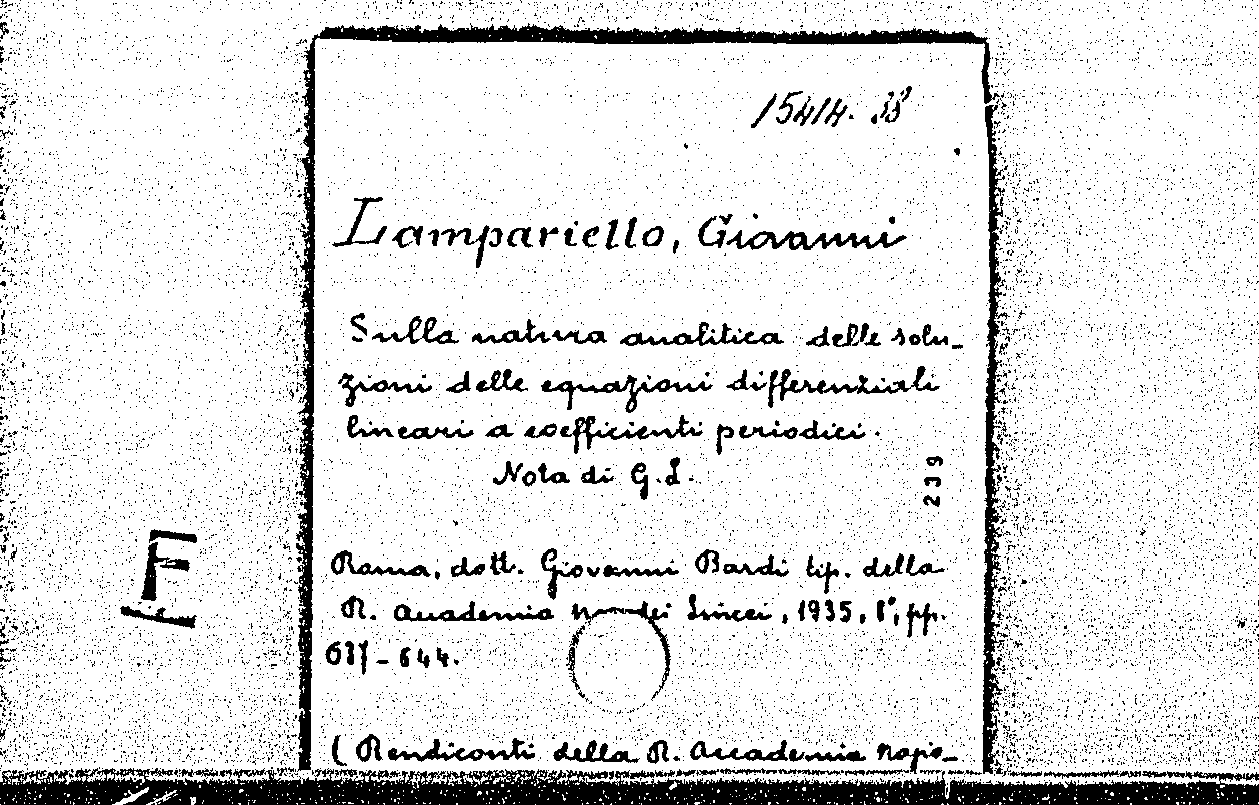 15414. 38
Lampariello, Giovanni
Sulla natura analitica delle solu-
zioni delle equazioni differenziali
lineari a coefficienti periodici.
Nota di G. L.
239
F
Roma, dott. Giovanni Bardi tip. della
R. Accademia dei Lincei, 1935, 8°, pp.
637-644.
( Rendiconti della R. Accademia Nazio-